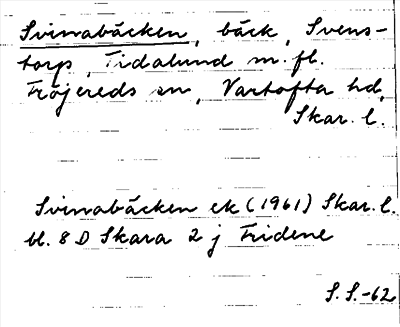 Svinabäcken, bäck, Svens-
torp, Tidalund m. fl.
Fröjereds sn, Vartofta hd,
Skar. l.
Svinabäcken ek (1961) Skar. l.
bl. 8 D Skara 2 j Fridene
S. S.-62